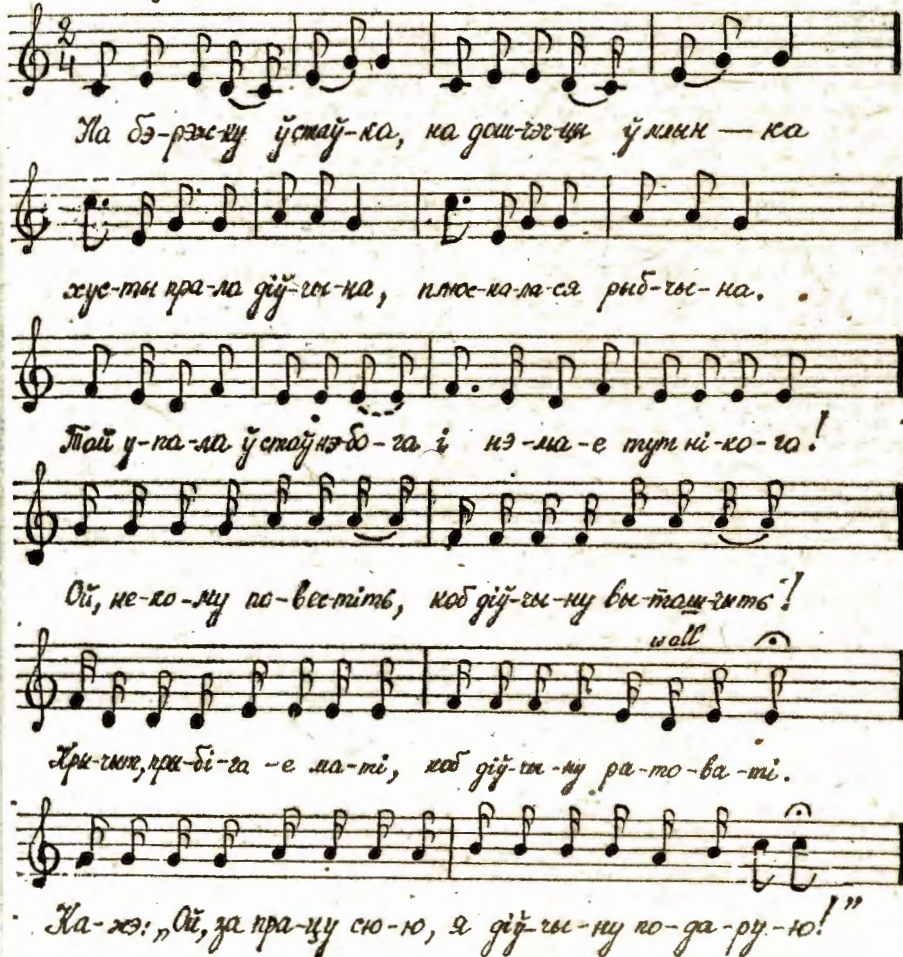 2/4
На бэ-рэж-ку ўстаў-ка, на дош-чэч-цы ў млын — ка
хус-ты пра-ла діў-чы-на, плюс-ка-ла-ся рыб-чы-на.
Тай у-па-ла ў стаў нэ-бо-га і нэ-ма-е тут ні-ко-го!
Ой, не-ко-му по-вес-тіть, коб діў-чы-ну вы-таш-чыть!
Кры-чыт, пры-бі-га-е ма-ті, коб діў-чы-ну ра-то-ва-ті.
Ка-жэ: „Ой, за пра-цу сю-ю, я діў-чы-ну по-да-ру-ю!”